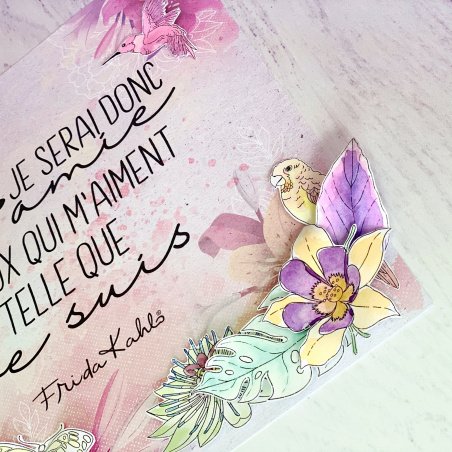 JE SERAI DONC
amie
QUI M'AIMENT
TELLE QUE
suis
Frida Kahlo